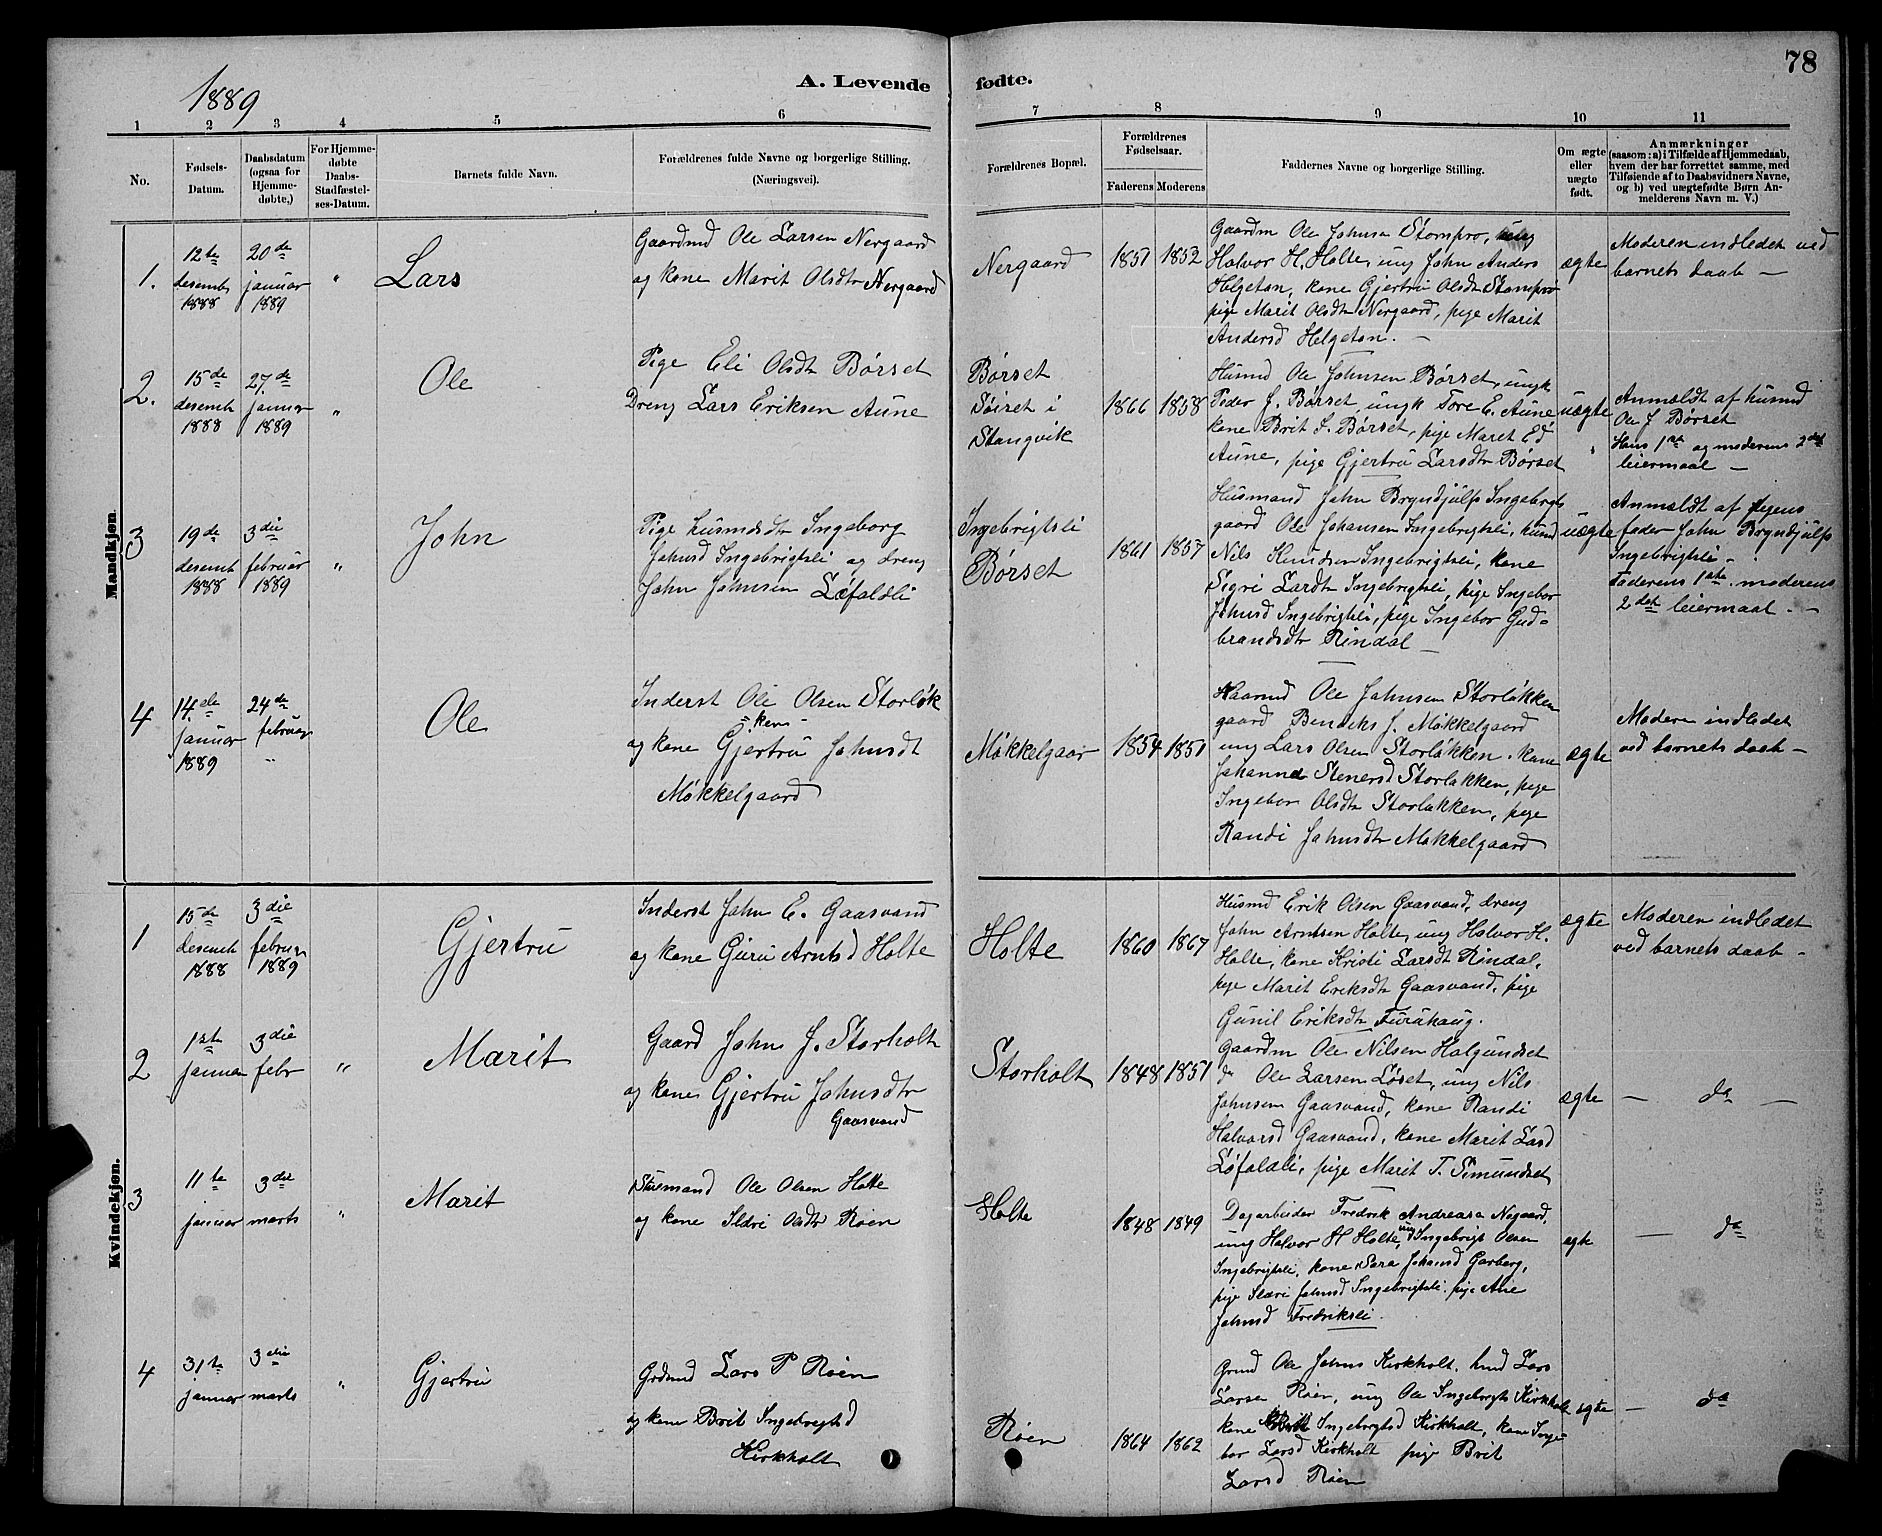 78
1889
A. Levende
fødte.
1 2 3 4 5 6 7 8 9 10 11
No.
Fødsels-
Datum.
Daabsdatum
(ogsaa for
Hjemme-
døbte,)
For Hjemme-
døbte
Daabs-
Stadfæstel-
ses-Datum.
Barnets fulde Navn.
Forældrenes fulde Navne og borgerlige Stilling.
(Næringsvei).
Forældrenes Bopæl.
Forældrenes
Fødselsaar.
Faderens Moderens
Faddernes Navne og borgerlige Stilling.
Om ægte
eller
uægte
født.
Anmærkninger
(saasom: a) i Tilfælde af Hjemmedaab,
hvem der har forrettet samme, med
Tilføiende af to Daabsvidners Navne,
og b) ved uægtefødte Børn An-
melderens Navn m. V.)
Mandkjøn.
1.
12te
desemb
1888
20de
januar
1889
"
Lars
Gaardmd Ole Larsen Nergaard
og kone Marit Olsdtr Nergaard
Nergaard
1851 1852
Gaardm Ole Johnsn Stompro,
Halvor H. Holte, ung John Anders
Helgeton, kone Gjertru Olsdt Stompro
pige Marit Olsdtr Nergaard, pige Marit
Andersd Helgeton. —
ægte
Moderen indledet ved
barnets daab —
2.
15de
desemb
1888
27de
januar
1889
"
Ole
Pige Eli Olsdt Børset
Dreng Lars Eriksen Aune
Børset
Søiset i
Stangvik
1866 1858
Husmd Ole Johnsen Børset, ungk
Peder J. Børset, ungk Tore E. Aune
kone Brit S. Børset, pige Maret Ed
Aune, pige Gjertru Larsdtr Børset
uægte
Anmældt af husmd
Ole J Børset
Hans 1ste og moderens 2det
leiermaal —
3
19de
desemb
1888
3die
februar
1889
"
John
Pige husmdsdtr Ingeborg
Johnsd Ingebrigtsli og dreng
John Johnsen Løfaldli
Ingebrigtsli
Børset
1861 1857
Husmand John Bryndjulfs Ingebrigts
gaard Ole Johansen Ingebrigtsli, husmd
Nils Knudsen Ingebrigtsli, kone
Sigri Larsdt Ingebrigtsli, pige Ingebor
Johnsd Ingebrigtsli, pige Ingebor Gud=
brandsdtr Rindal —
uægte
Anmældt af pigens
fader John Bryndjulfs
Ingebrigtsli —
Faderens 1ste moderens
2det leiermaal. —
4
14de
januar
1889
24de
februar
"
Ole
Inderst Ole Olsen Storløk
=ken-
og kone Gjertru Johnsdt
Møkkelgaard
Møkkelgaar
1854 1851
Ole Johnsen Storløkken
gaard Bendiks J. Møkkelgaard
ung Lars Olsen Storløkken. kone
Johanna Stenersd Storløkken, pige
Ingebor Olsdtr Storløkken, pige
Randi Johnsdtr Møkkelgaard
ægte
Moderen indledet
ved barnets daab —
Kvindekjøn.
1
15de
desemb
1888
3die
februar
1889
Gjertru
Inderst John E. Gaasvand
og kone Guru Arntsd Holte
Holte
1860 1867
Husmd Erik Olsen Gaasvand, dreng
John Arntsen Holte, ung Halvor H.
Holte, kone Kristi Larsdt Rindal,
pige Marit Eriksdtr Gaasvand, pige
Gunil Eriksdtr Furuhaug.
ægte
Moderen indledet
ved barnets daab —
2
1ste
januar
3die
febr
"
Marit
Gaard John J. Storholt
og kone Gjertru Johnsdtr
Gaasvand
Storholt
1848 1851
Gaardm Ole Nilsen Halgundset
do Ole Larsen Løset, ung Nils
Johnsen Gaasvand, kone Randi
Halvorsd Gaasvand, kone Marit Larsd
Løfaldli, pige Marit T. Simundset
ægte
— do —
3
11te
januar
3die
marts
"
Marit
Ole Olsen Holte
og kone Ildri Olsdtr Røen
Holte
1848 1849
Dagarbeider Fredrik Andreasn Negaard,
ung Halvor H Holte, ung Ingebrigt Olsen
Ingebrigtsli, kone Sara Johansd Garberg,
pige Johnsd Ingebrigtsli, pige Ane
Johnsd Fredriksli.
ægte
— do
4
31te
januar
3die
marts
"
Gjertru
Grdmd Lars P Røen
og kone Brit Ingebrigtsd
Kirkholt
Røen
1864 1862
Grmd Ole Johns Kirkholt, hmd Lars
Larsen Røen, ung Ole Ingebrigts Kirkholt
kone Ingebrigtsd Kirkholt, kone Inge
bor Larsd Kirkholt pige Brit
Larsd Røen
ægte
— do